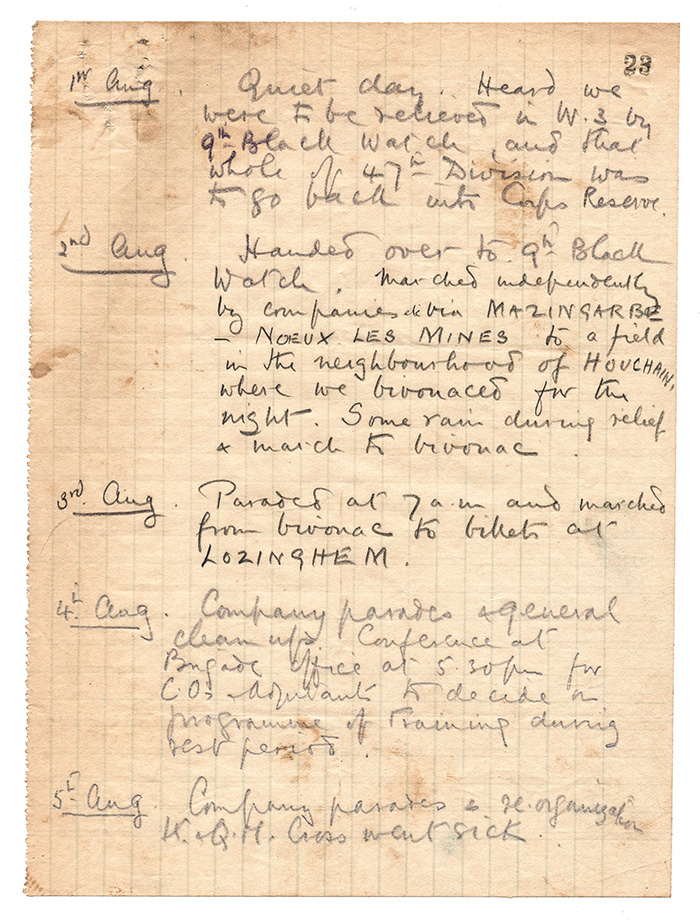 23
1st Aug. Quiet day. Heard we
were to be relieved in W.3 by
9th Black Watch, and that
whole of 47th Division was
to go back into Corps Reserve.
2nd Aug. Handed over to 9th Black
Watch. Marched independently
by companies via MAZINGARBE
- NOEUX LES MINES to a field
in the neighbourhood of HOUCHAIN,
where we bivouaced for the
night. Some rain during relief
& march to bivouac.
3rd Aug. Paraded at 7 a.m and marched
from bivouac to billets at
LOZINGHEM.
4th Aug. Company parades & general
clean up. Conference at
Brigade office at 5.30pm for
C.Os & Adjutants to decide on
programme of Training during
rest period.
5th Aug. Company parades & re-organization
Cross went sick.